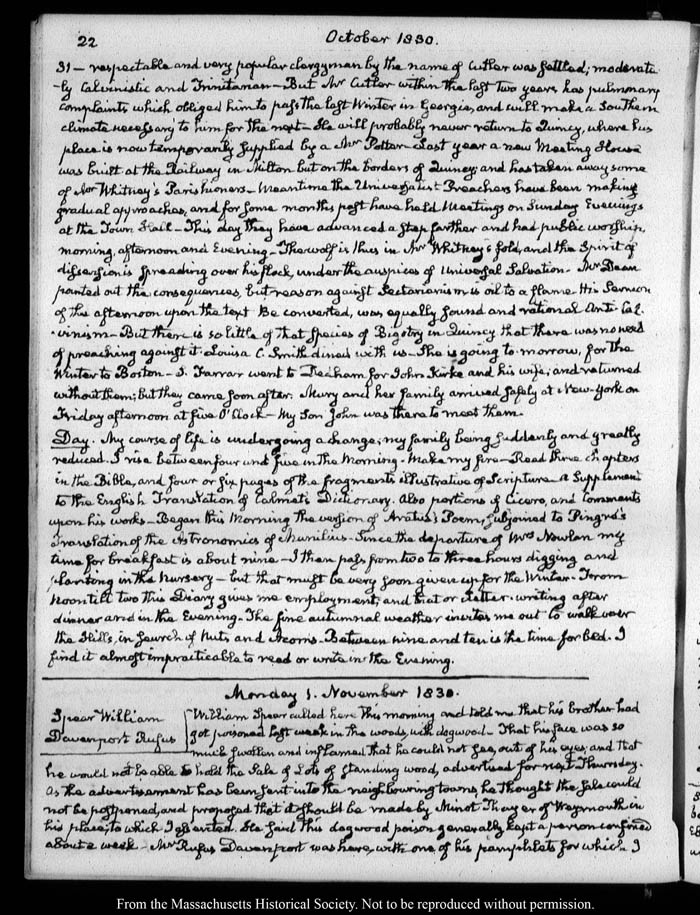 22
October 1830.
31 — respectable and very popular clergyman by the name of Cutler was settled; moderate
-ly Calvinistic and Trinitarian — But Mr Cutler within the last two years, has pulmonary
complaints which obliged him to pass the last Winter in Georgia, and will make a Southern
climate necessary to him for the next — He will probably never return to Quincy, where his
place is now temporarily supplied by a Mr Potter — Last year a new Meeting House
was built at the Railway in Milton but on the borders of Quincy and has taken away some
of Mr Whitney's Parishioners — Meantime the Universalist Preachers have been making
gradual approaches, and for some months past have held Meetings on Sunday Evenings
at the Town Hall — This day they have advanced a step farther and had public worship,
morning, afternoon and Evening — The wolf is thus in Mr Whitney's fold, and the Spirit of
dispersion is spreading over his flock, under the auspices of Universal Salvation — Mr Dean
pointed out the consequences, but reason against Sectarianism is oil to a flame His Sermon
of this afternoon upon the text Be converted, was equally sound and rational Anti-Cal-
-vinism — But there is so little of that species of Bigotry in Quincy that there was no need
of preaching against it. Louisa C. Smith dined with us — She is going to-morrow, for the
Winter to Boston — I. Farrar went to Dedham for John Kirke and his wife; and returned
without them; but they came soon after. Mary and her family arrived safely at New-York on
Friday afternoon at five O'Clock — My Son John was there to meet them.
Day. My course of life is undergoing a change; my family being suddenly and greatly
reduced. I rise between four and five in the Morning. Make my fire — Read three chapters
in the Bible, and four or six pages of the fragments illustrative of Scripture — a Supplement
to the English Translation of Calmet's Dictionary. Also portions of Cicero, and Comments
upon his works — Began this Morning the version of Aratus's Poem, subjoined to Pingré's
Translation of the Astronomics of Manilius — Since the departure of Mrs Nowlan my
time for breakfast is about nine — I then pass from two to three hours digging and
planting in the Nursery — but that must be very soon given up for the Winter. From
Noon till two this Diary gives me employment, and that or Letter-writing after
dinner and in the Evening. The fine autumnal weather invites me out to walk over
the Hills, in search of Nuts and Acorns — Between nine and ten is the time for bed. I
find it almost impracticable to read or write in the Evening.
Monday 1. November 1830.
Spear William
Davenport Rufus
William Spear called here this morning and told me that his brother had
got poisoned last week in the woods, with dogwood — That his face was so
much swollen and inflamed that he could not see, out of his eyes, and that
he would not be able to hold the Sale of Lots of standing wood, advertised for next Thursday.
As the advertisement has been sent into the neighbouring towns, he thought the Sale could
not be postponed, and proposed that it should be made by Minot Thayer of Weymouth in
his place; to which I assented. He said this dogwood poison generally kept a person confined
about a week — Mr Rufus Davenport was here, with one of his pamphlets for which I
From the Massachusetts Historical Society. Not to be reproduced without permission.